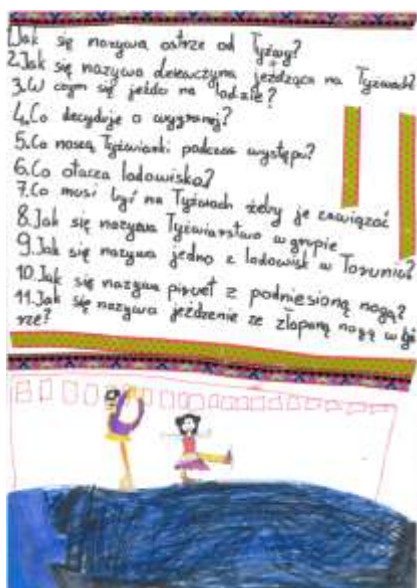 1.Jak się nazywa ostrze od Tyżwy?
2.Jak się nazywa dziewczyna jeżdżąca na Tyżwach?
3.W czym się jeździ na lodzie?
4.Co decyduje o wygranej?
5.Co noszą Tyżwiarki podczas występu?
6.Co otacza lodowisko?
7.Co musi być na Tyżwach żeby je zawiązać
8.Jak się nazywa Tyżwiarstwo w grupie
9.Jak się nazywa jedno z lodowisk w Toruniu?
10.Jak się nazywa piruet z podniesioną nogą?
11.Jak się nazywa jeżdżenie ze złapaną nogą w gó
rze?